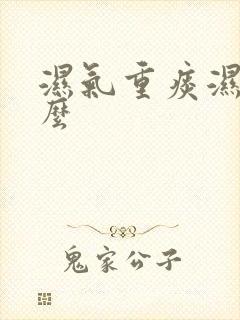 濕氣重痰濕
麼
鬼家公子